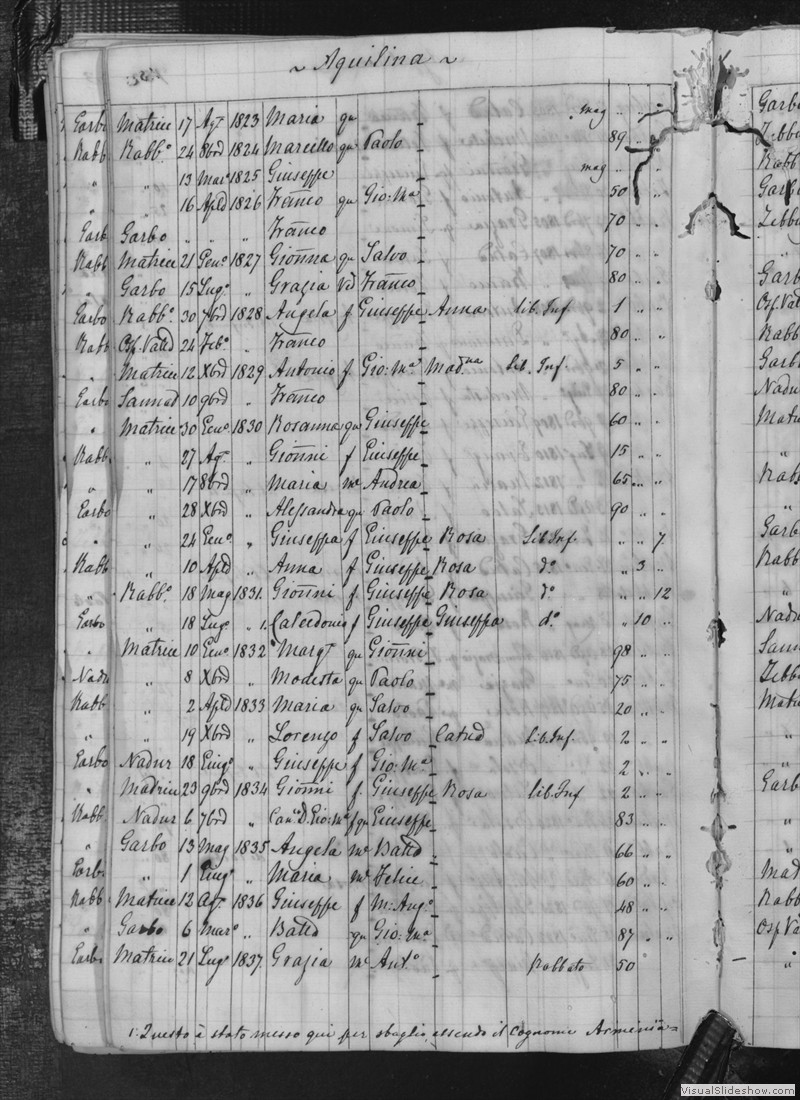 ~ Aquilina ~
Garbo Matrice 17 Agt 1823 Maria qu mag " "
Rabb Rabbo 24 8bre 1824 Marcello qu Paolo 89 " "
" " 13 Maro 1825 Giuseppe mag " "
" " 16 Aple 1826 Franco qu Gio: Ma 50 " "
Garb Garbo " " " Franco 70 " "
Rabb Matrice 21 Geno 1827 Gionna qu Salvo 70 " "
" Garbo 15 Lugo " Grazia Vd Franco 80 " "
Garbo Rabbo 30 7bre 1828 Angela f Giuseppe Anna Lib. Inf. 1 " "
Rabb Osp. Vatta 24 Febo " Franco 80 " "
" Matrice 12 Xbre 1829 Antonio f Gio: Ma Madna Lib. Inf. 5 " "
Garbo Sannat 10 9bre " Franco 80 " "
" Matrice 30 Geno 1830 Rosanna qu Giuseppe 60 " "
Rabb " 27 Agt " Gionni f Giuseppe 15 " "
" " 17 8bre " Maria me Andrea 65 " "
Garbo " 28 Xbre " Alessandra qu Paolo 90 " "
" " 24 Geno " Giuseppa f Giuseppe Rosa Lib. Inf. " " 7
Rabb " 10 Aple " Anna f Giuseppe Rosa do " 3 "
" Rabbo 18 Mag 1831 Gionni f Giuseppe Rosa do " " 12
Garbo " 18 Lugo " 1. Calcedonio f Giuseppe Giuseppa do " 10 "
" Matrice 10 Geno 1832 Margt qu Gionni 98 " "
Nadur " 8 Xbre " Modesta qu Paolo 75 " "
Rabb " 2 Aple 1833 Maria qu Salvo 20 " "
" " 19 Xbre " Lorenzo f Salvo Catna Lib. Inf. 2 " "
Garbo Nadur 18 Giugo " Giuseppe f Gio: Ma 2 " "
" Madrice 23 9bre 1834 Gionni f Giuseppe Rosa Lib. Inf 2 " "
Rabb Nadur 6 7bre " Cano D. Gio: Ma f qu Giuseppe 83 " "
" Garbo 13 Mag 1835 Angela me Batta 66 " "
Garb. " 1 Giugo " Maria me Felice 60 " "
Rabb Matrice 12 Agt 1836 Giuseppe f M: Ango 48 " "
" Garbo 6 Maro " Batta qu Gio: Ma 87 " "
Garbo Matrice 21 Lugo 1837. Grazia me Anto Rabbato 50
1: Questo è stato messo qui per sbaglio, essendo il Cognome Armenia =
VisualSlideshow.com